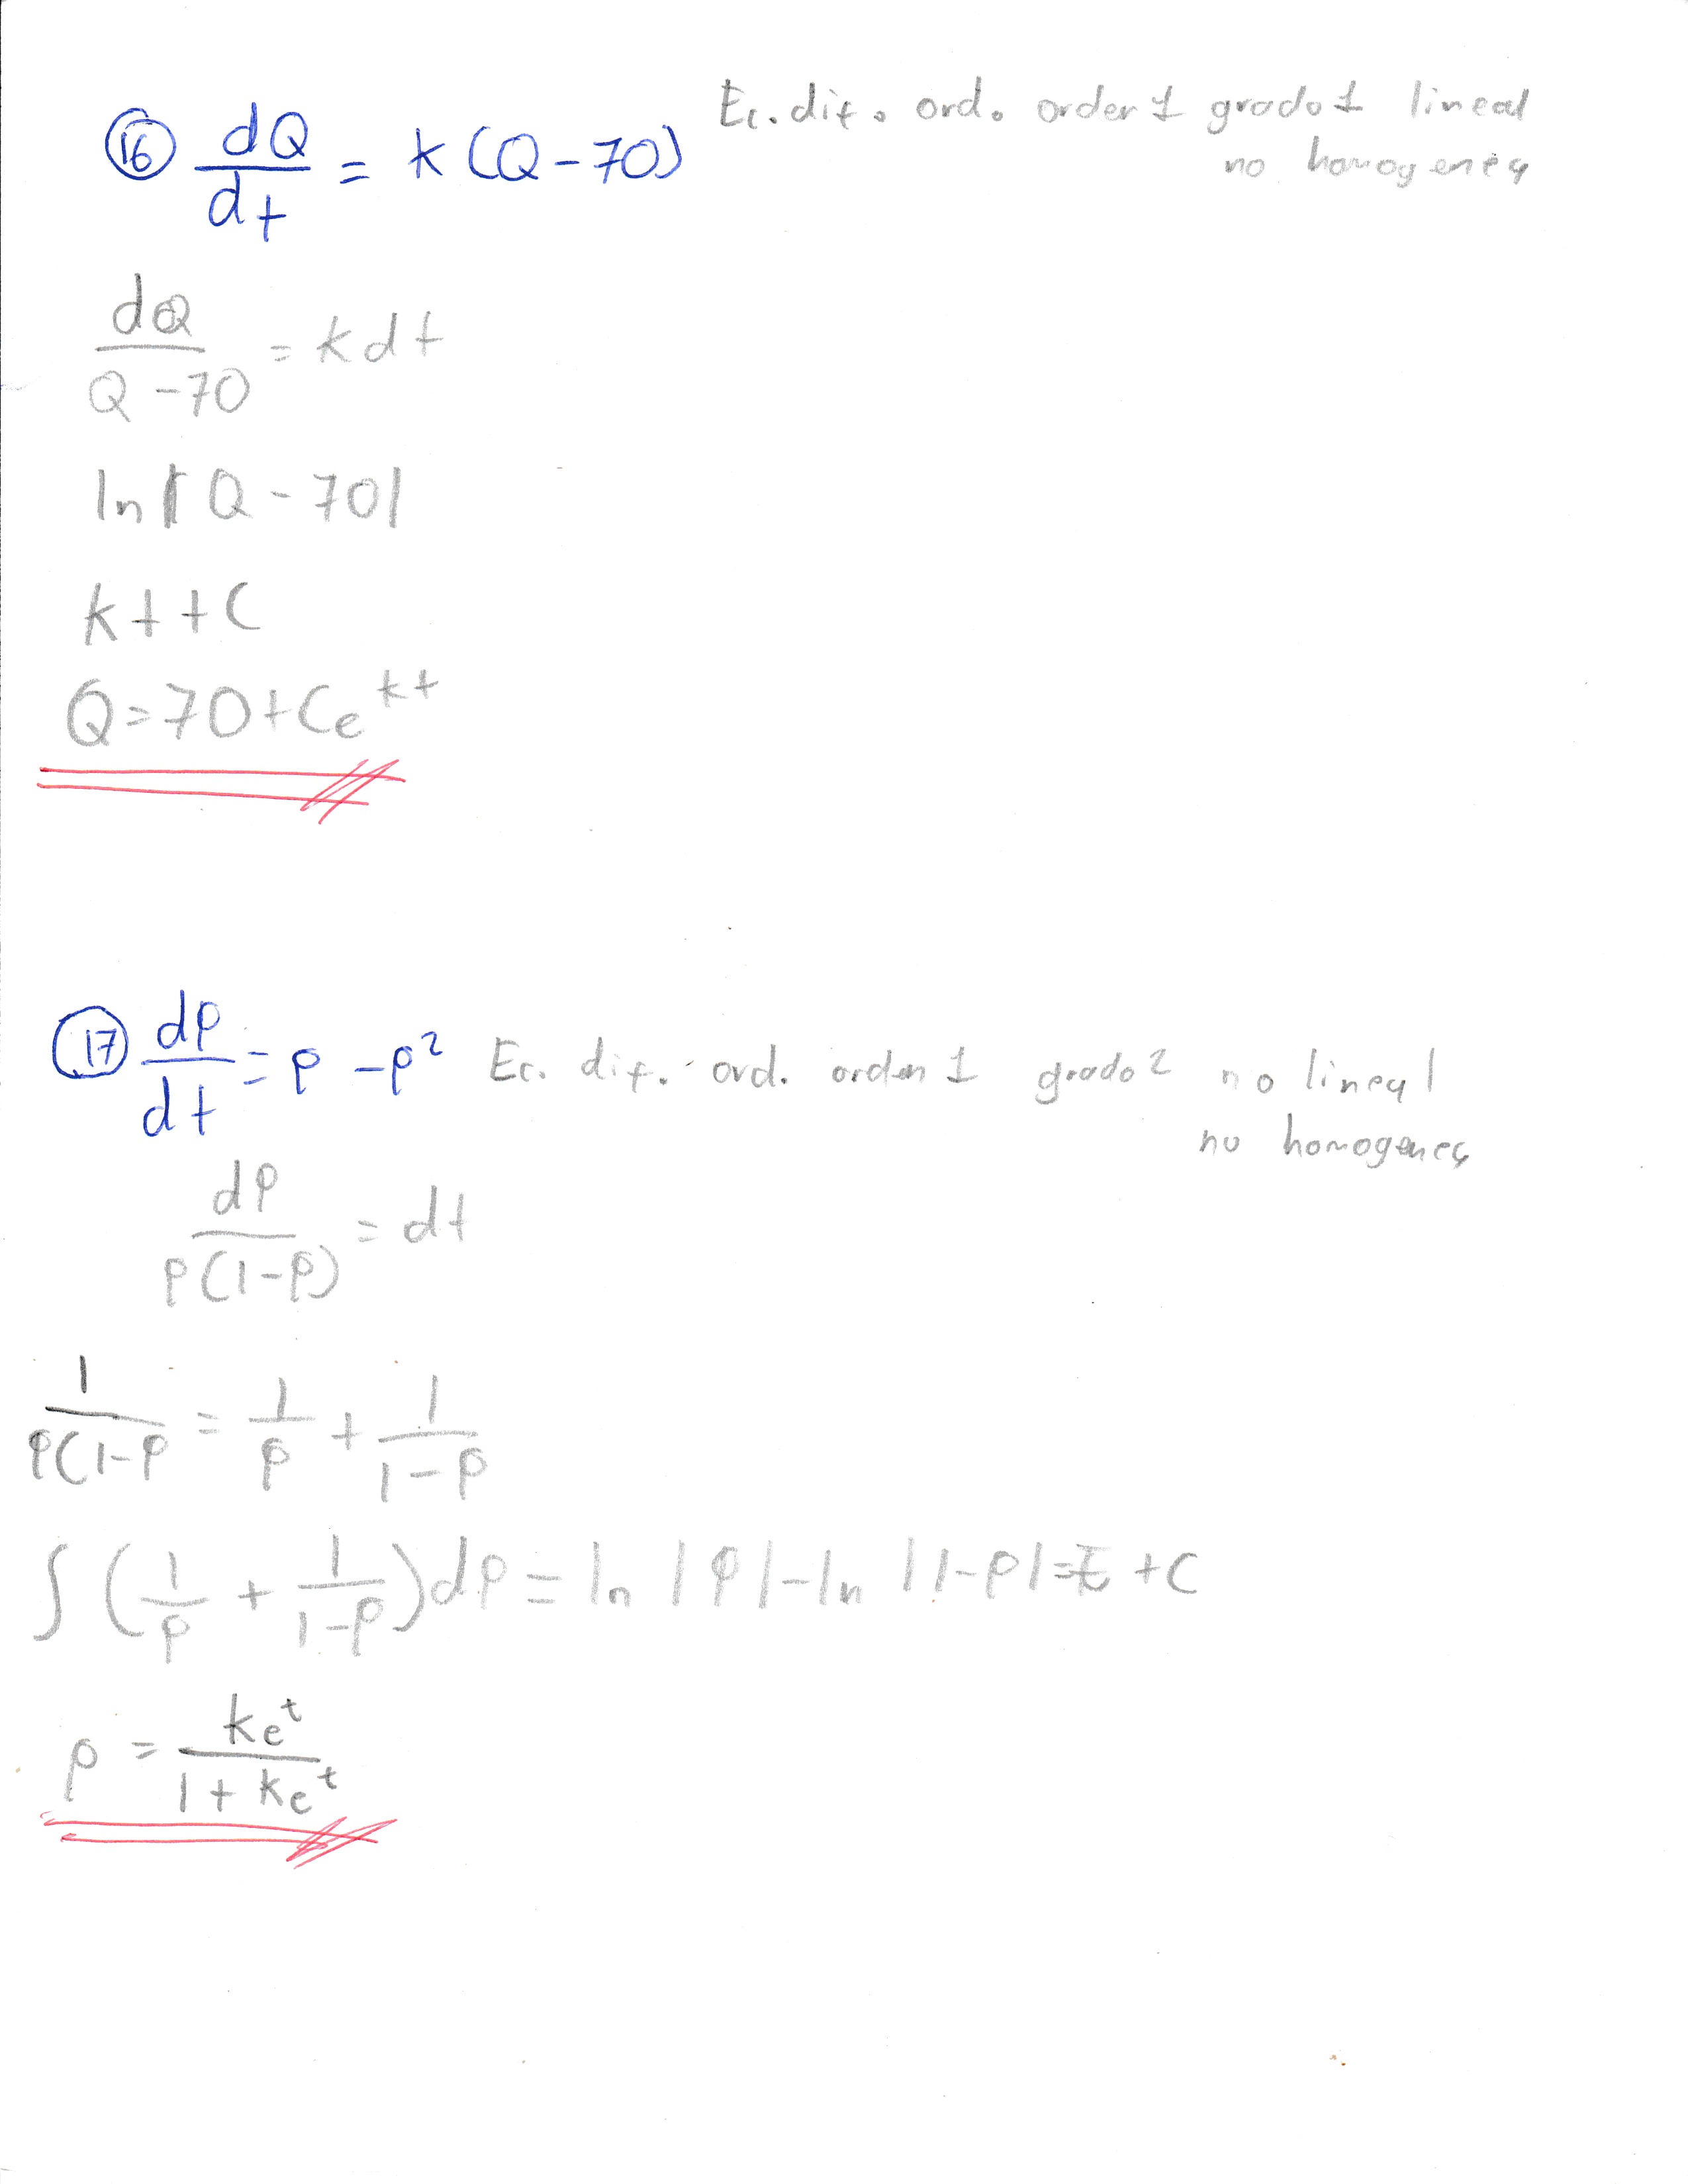 Ec. dif. ord. orden 1 grado 1 lineal
no homogenea
16 dQ/dt = k (Q-70)
dQ/(Q-70) = k dt
ln |Q - 70|
kt + C
Q = 70 + Ce^kt
17 dP/dt = P - P² Ec. dif. ord. orden 1 grado 2 no lineal
no homogenea
dP/(P(1-P)) = dt
1/(P(1-P = 1/P + 1/(1-P)
∫ (1/P + 1/(1-P)) dP = ln |P| - ln |1-P| = t + C
P = ke^t/(1 + ke^t)